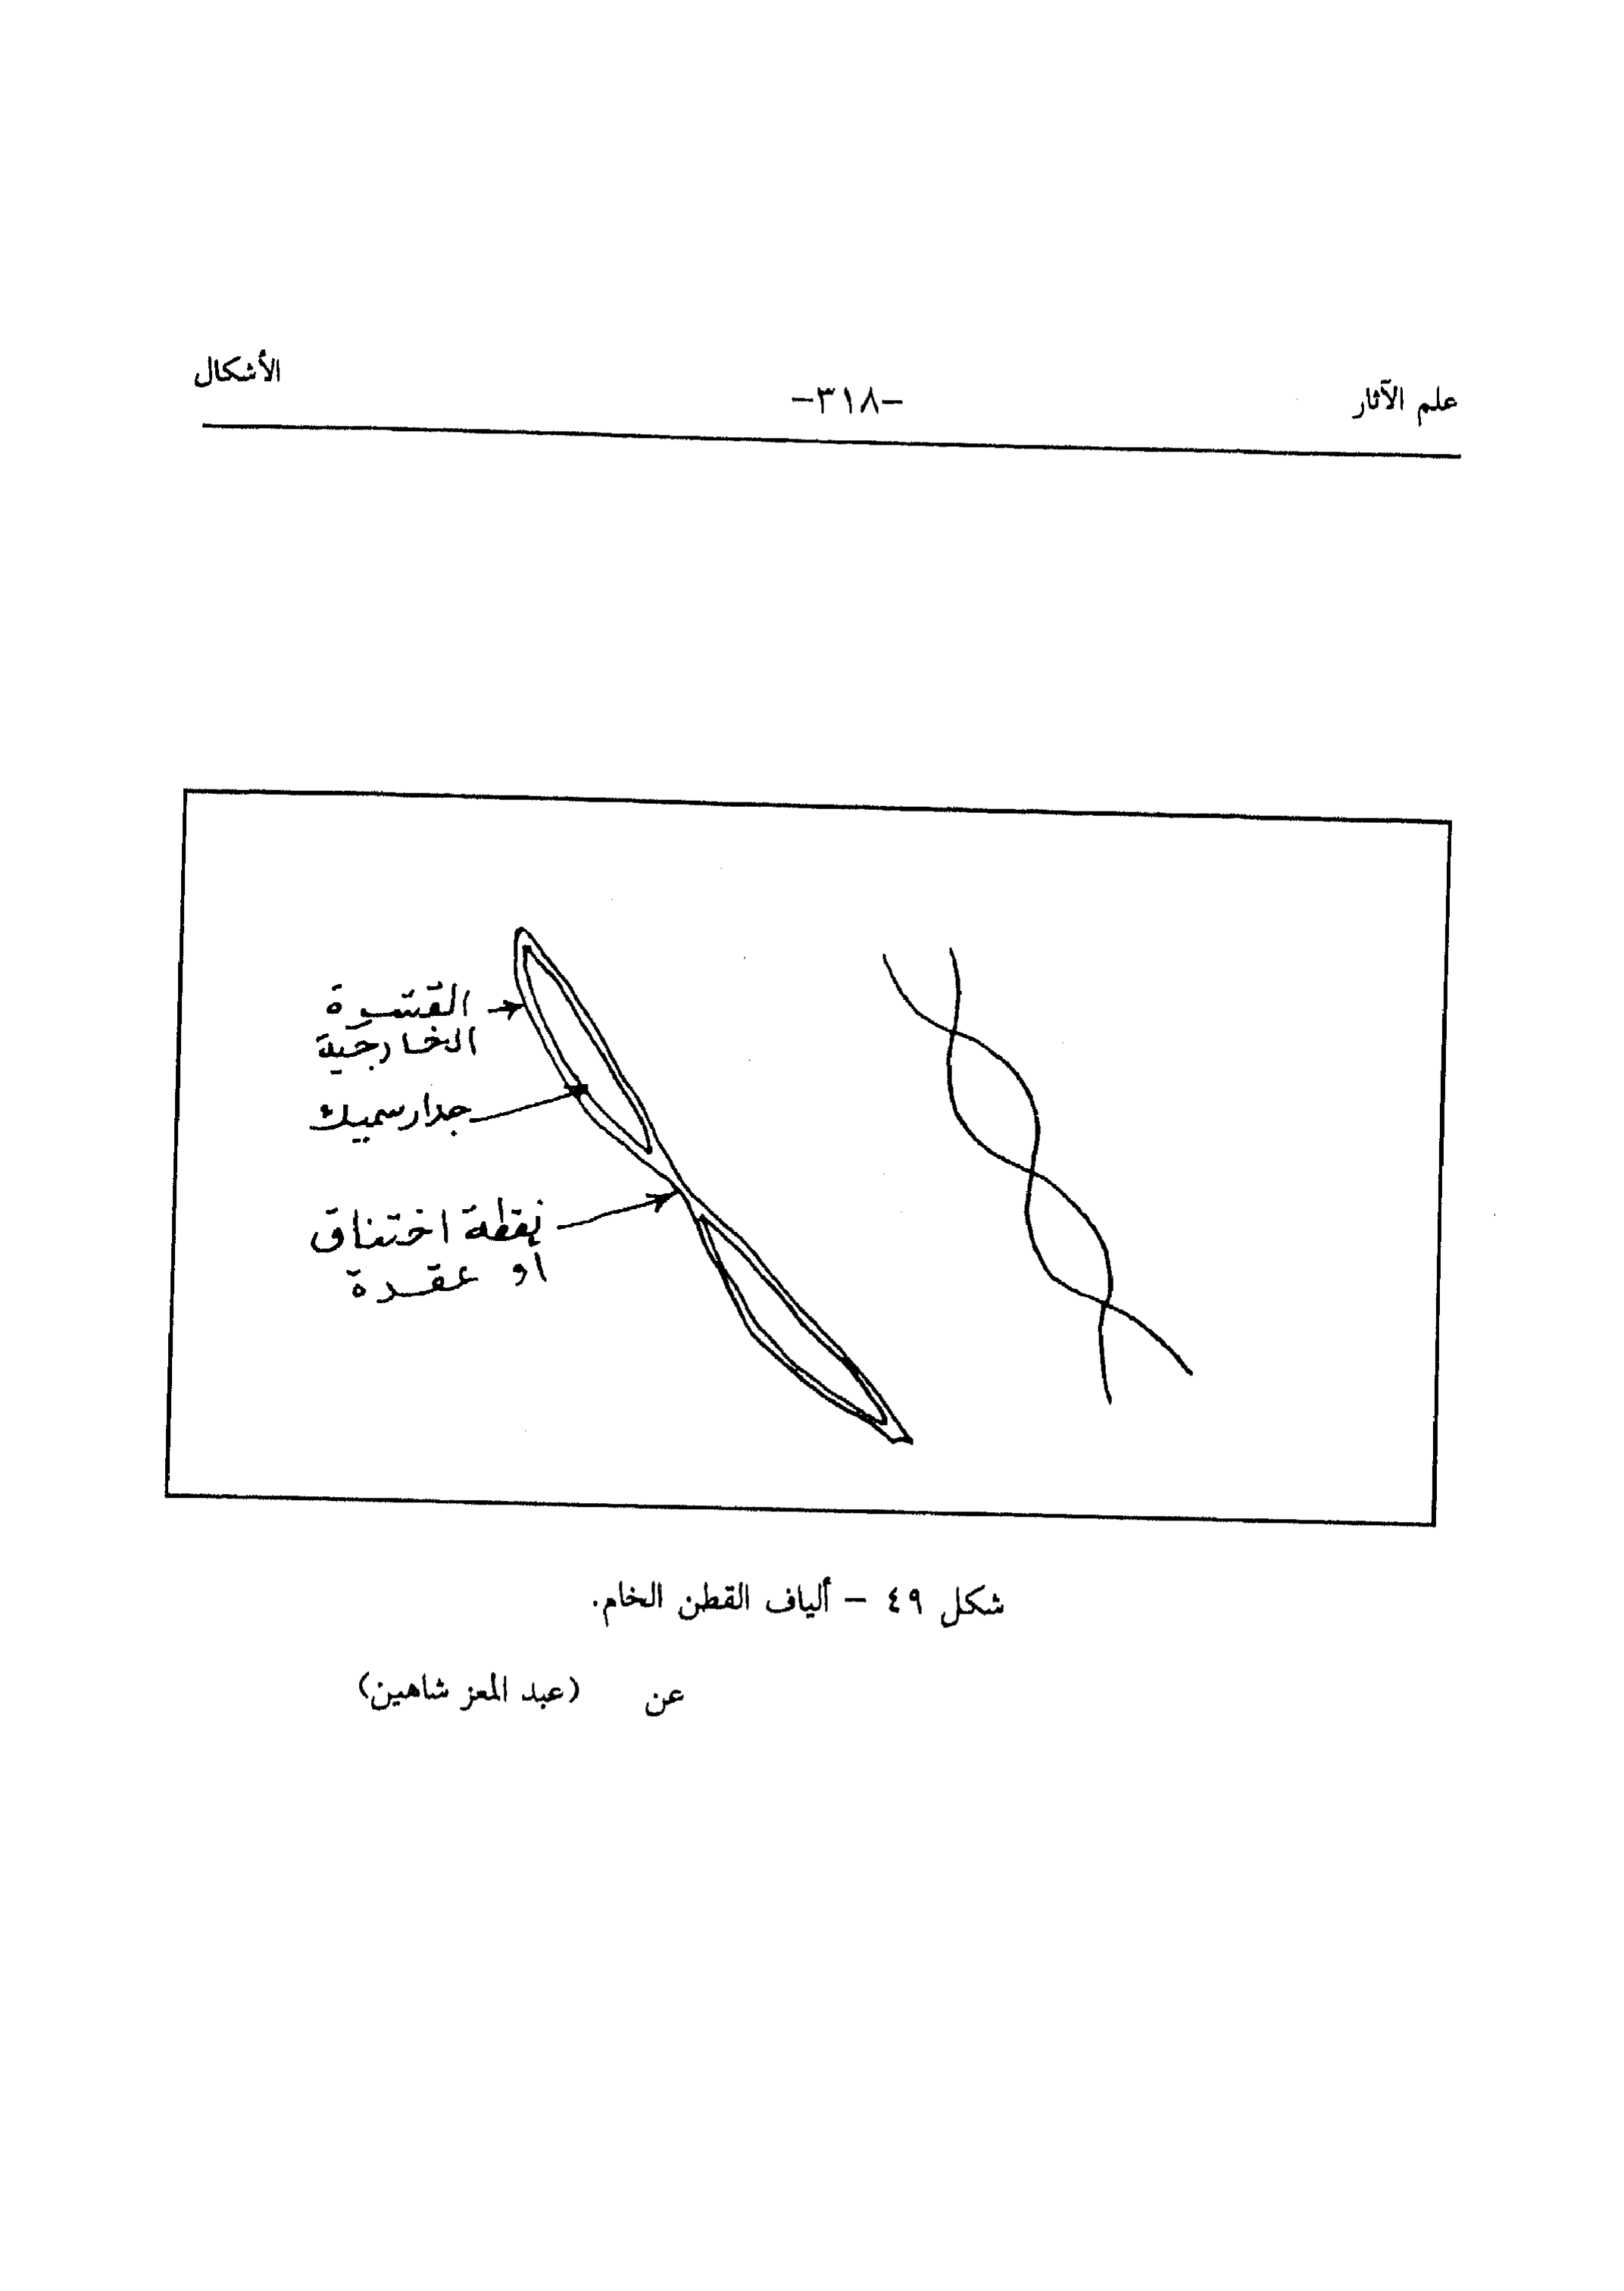 علم الآثار
-٣١٨-
الأشكال
القشرة
الخارجية
جدار سميك
نقطة اختناق
أو عقدة
شكل ٤٩ – ألياف القطن الخام.
عن (عبد المعز شاهين)